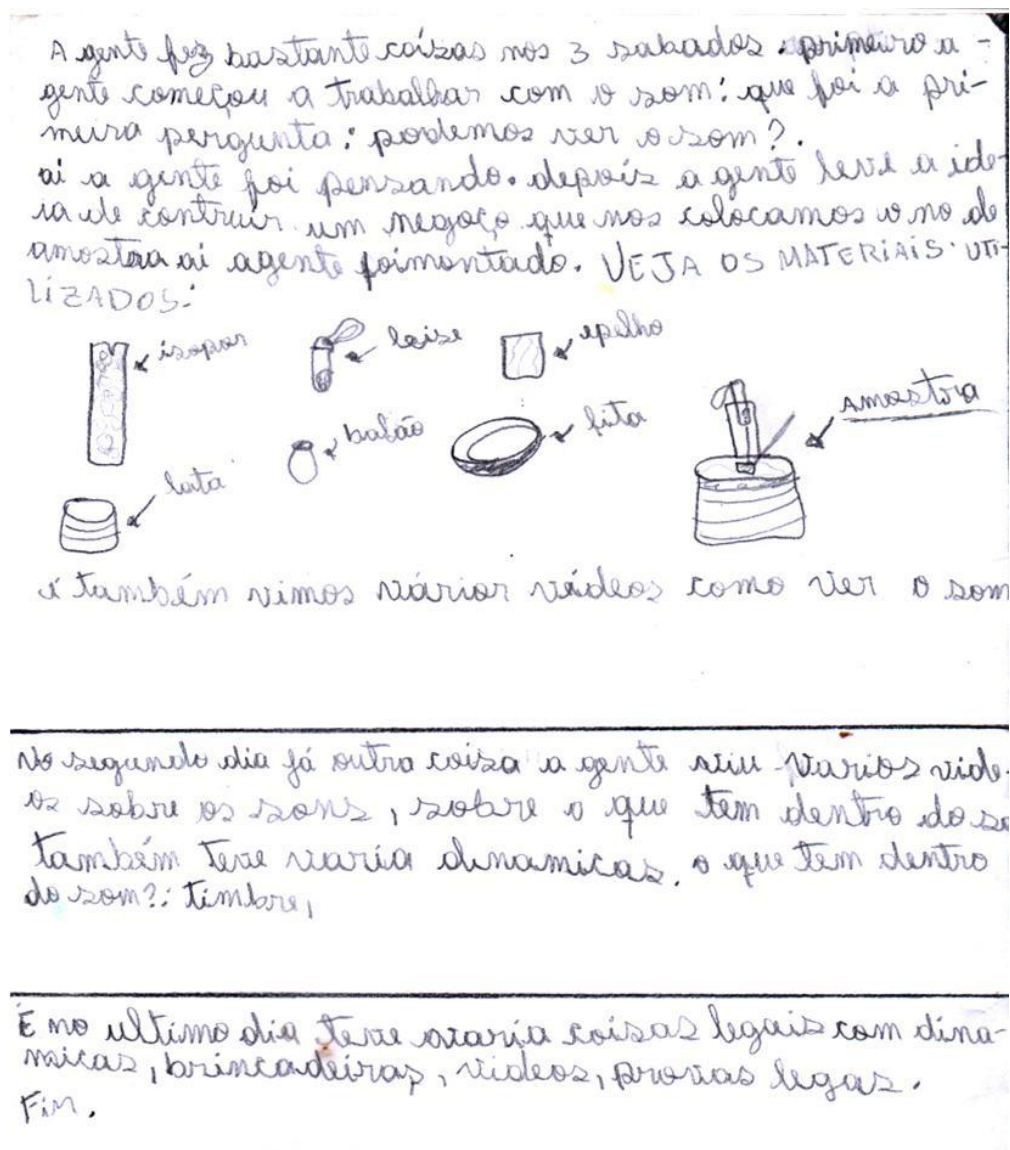 A gente fez bastante coizas nos 3 sabados. primeiro a-
gente começou a trabalhar com o som: que foi a pri-
meira pergunta: podemos ver o som?.
ai a gente foi pensando. depois a gente teve a ide-
ia de contruir um negoço que nos colocamos o no de
amostra ai agente foi montado. VEJA OS MATERIAIS UTI-
LIZADOS:
isopor
laise
epelho
balão
fita
Amostra
lata
é também vimos várior vídeos como ver o som
No segundo dia já outra coisa a gente viu varios vide-
os sobre os sons, sobre o que tem dentro do so
também teve varia dinamicas. o que tem dentro
do som?: timbre,
É no ultimo dia teve varia coisas legais com dina-
micas, brincadeiras, videos, provas legas.
Fim.